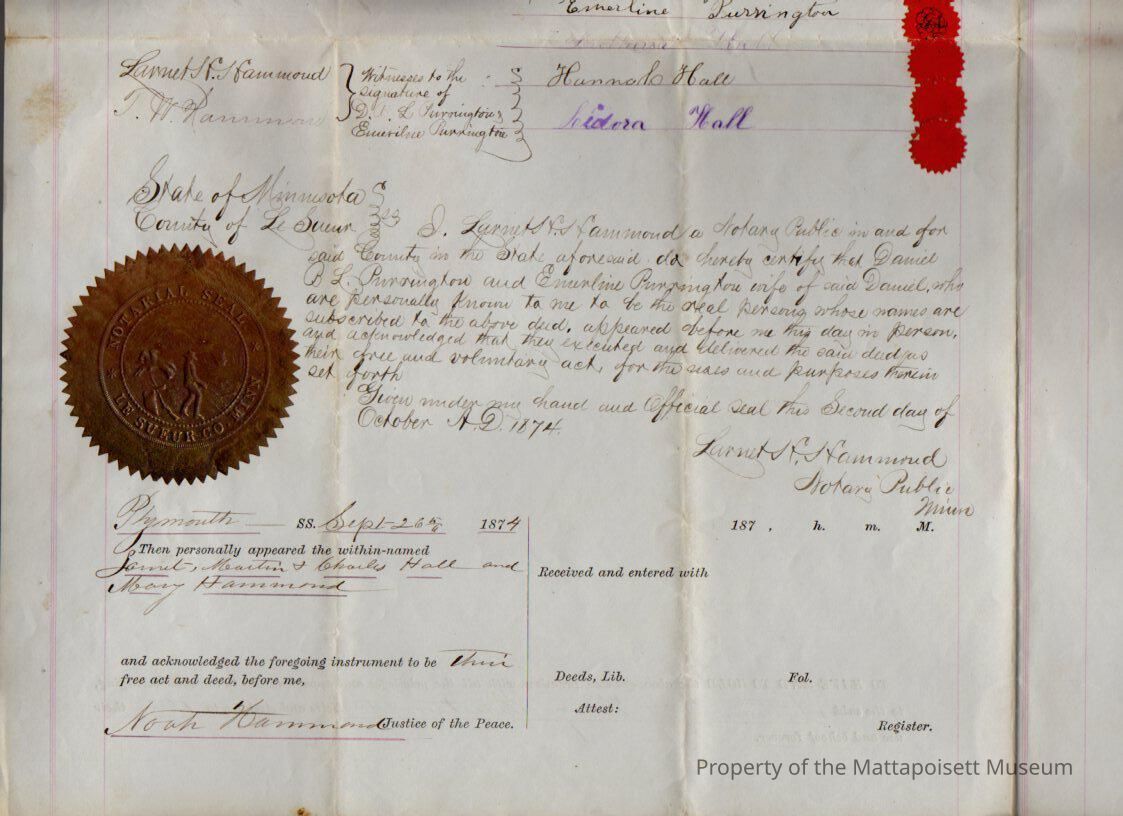 Emerline Purrington
Larnet H. Hammond
T. W. Hammond
Witnesses to the
signature of
D. B. L. Purrington &
Emerline Purrington
Hannah Hall
Isidora Hall
State of Minnesota
County of Le Sueur ss
I, Larnet H. Hammond a Notary Public in and for
said County in the State aforesaid do hereby certify that Daniel
B L. Purrington and Emerline Purrington wife of said Daniel, who
are personally known to me to be the real persons whose names are
subscribed to the above deed, appeared before me this day in person,
and acknowledged that they executed and delivered the said deed as
their free and voluntary act, for the uses and purposes therein
set forth
Given under my hand and Official seal this Second day of
October A.D. 1874.
Larnet H. Hammond
Notary Public
Minn
NOTARIAL SEAL
LE SUEUR CO MINN
Plymouth SS. Sept 26th 1874
Then personally appeared the within-named
Larnet, Martin & Charles Hall and
Mary Hammond
and acknowledged the foregoing instrument to be their
free act and deed, before me,
Noah Hammond Justice of the Peace.
187 , h. m. M.
Received and entered with
Deeds, Lib. Fol.
Attest:
Register.
Property of the Mattapoisett Museum